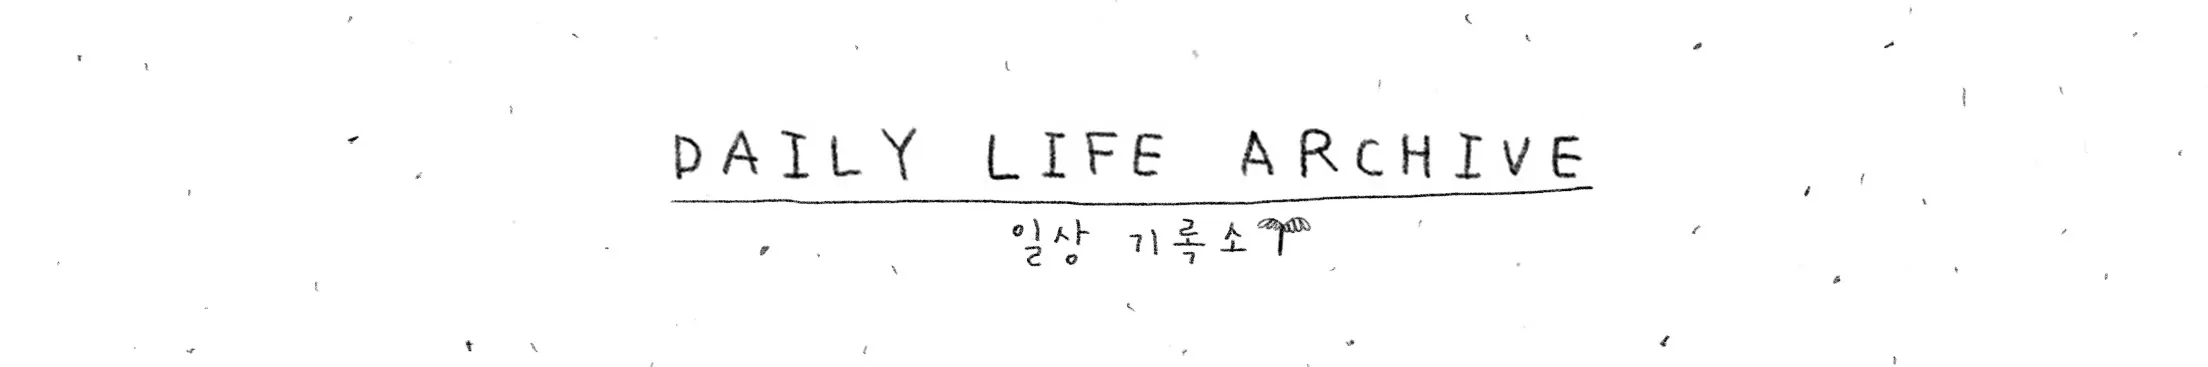 DAILY LIFE ARCHIVE
일상 기록소